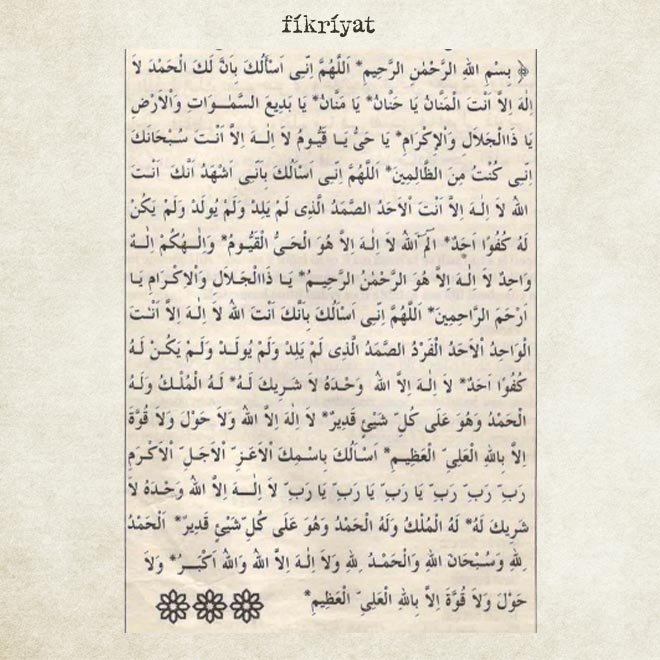 fikriyat
﴿ بِسْمِ اللهِ الرَّحْمٰنِ الرَّحِيمِ* اَللّٰهُمَّ اِنّٖى اَسْأَلُكَ بِاَنَّ لَكَ الْحَمْدَ لَا
اِلٰهَ اِلَّا اَنْتَ الْمَنَّانُ يَا حَنَّانُ* يَا مَنَّانُ* يَا بَدِيعَ السَّمٰوَاتِ وَالْاَرْضِ
يَا ذَاالْجَلَالِ وَالْاِكْرَامِ* يَا حَىُّ يَا قَيُّومُ لَا اِلٰهَ اِلَّا اَنْتَ سُبْحَانَكَ
اِنّٖى كُنْتُ مِنَ الظَّالِمِينَ* اَللّٰهُمَّ اِنّٖى اَسْاَلُكَ بِاَنّٖى اَشْهَدُ اَنَّكَ اَنْتَ
اللهُ لَا اِلٰهَ اِلَّا اَنْتَ الْاَحَدُ الصَّمَدُ الَّذِى لَمْ يَلِدْ وَلَمْ يُولَدْ وَلَمْ يَكُنْ
لَهُ كُفُوًا اَحَدٌ* الٓمٓ اَللهُ لَا اِلٰهَ اِلَّا هُوَ الْحَىُّ الْقَيُّومُ* وَاِلٰهُكُمْ اِلٰهٌ
وَاحِدٌ لَا اِلٰهَ اِلَّا هُوَ الرَّحْمٰنُ الرَّحِيمُ* يَا ذَاالْجَلَالِ وَالْاِكْرَامِ يَا
اَرْحَمَ الرَّاحِمِينَ* اَللّٰهُمَّ اِنّٖى اَسْاَلُكَ بِاَنَّكَ اَنْتَ اللهُ لَا اِلٰهَ اِلَّا اَنْتَ
الْوَاحِدُ الْاَحَدُ الْفَرْدُ الصَّمَدُ الَّذِى لَمْ يَلِدْ وَلَمْ يُولَدْ وَلَمْ يَكُنْ لَهُ
كُفُوًا اَحَدٌ* لَا اِلٰهَ اِلَّا اللهُ وَحْدَهُ لَا شَرِيكَ لَهُ* لَهُ الْمُلْكُ وَلَهُ
الْحَمْدُ وَهُوَ عَلَى كُلِّ شَيْئٍ قَدِيرٌ* لَا اِلٰهَ اِلَّا اللهُ وَلَا حَوْلَ وَلَا قُوَّةَ
اِلَّا بِاللهِ الْعَلِىِّ الْعَظِيمِ* اَسْاَلُكَ بِاسْمِكَ الْاَعَزِّ الْاَجَلِّ الْاَكْرَمِ
رَبِّ رَبِّ رَبِّ يَا رَبِّ يَا رَبِّ يَا رَبِّ لَا اِلٰهَ اِلَّا اللهُ وَحْدَهُ لَا
شَرِيكَ لَهُ* لَهُ الْمُلْكُ وَلَهُ الْحَمْدُ وَهُوَ عَلَى كُلِّ شَيْئٍ قَدِيرٌ* اَلْحَمْدُ
لِلهِ وَسُبْحَانَ اللهِ وَالْحَمْدُ لِلهِ وَلَا اِلٰهَ اِلَّا اللهُ وَاللهُ اَكْبَرُ* وَلَا
حَوْلَ وَلَا قُوَّةَ اِلَّا بِاللهِ الْعَلِىِّ الْعَظِيمِ*